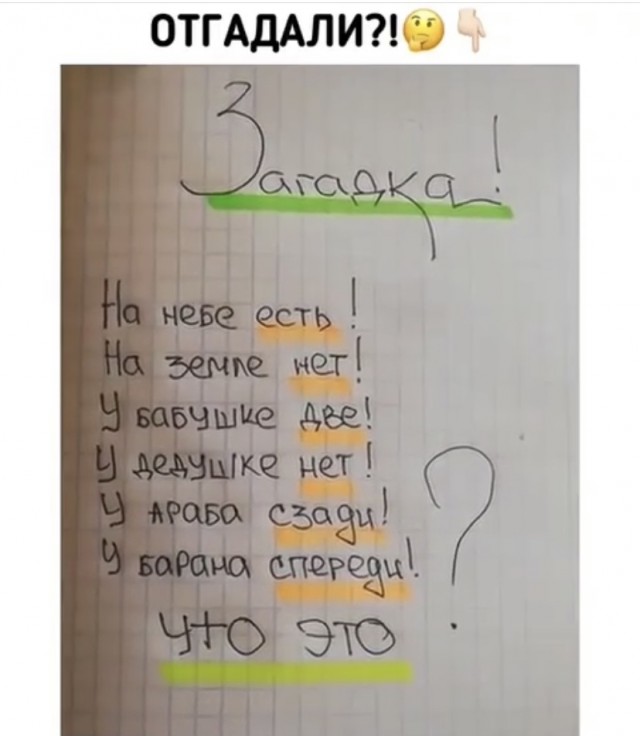 ОТГАДАЛИ?!🤔👇🏻
Загадка!
На небе есть!
На земле нет!
У бабушке две!
У дедушке нет!
У араба сзади!
У барана спереди!
?
Что это